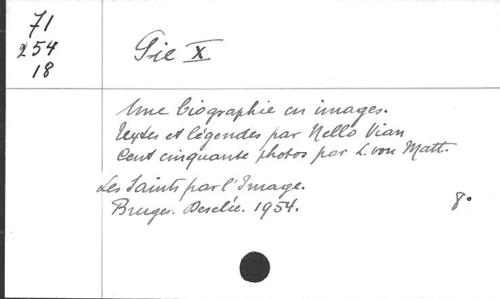 71
254
18
Pie X
Une biographie en images.
Textes et légendes par Nello Vian
Cent cinquante photos par L. von Matt.
Les Saints par l'Image.
Bruges. Desclée. 1954.
8°